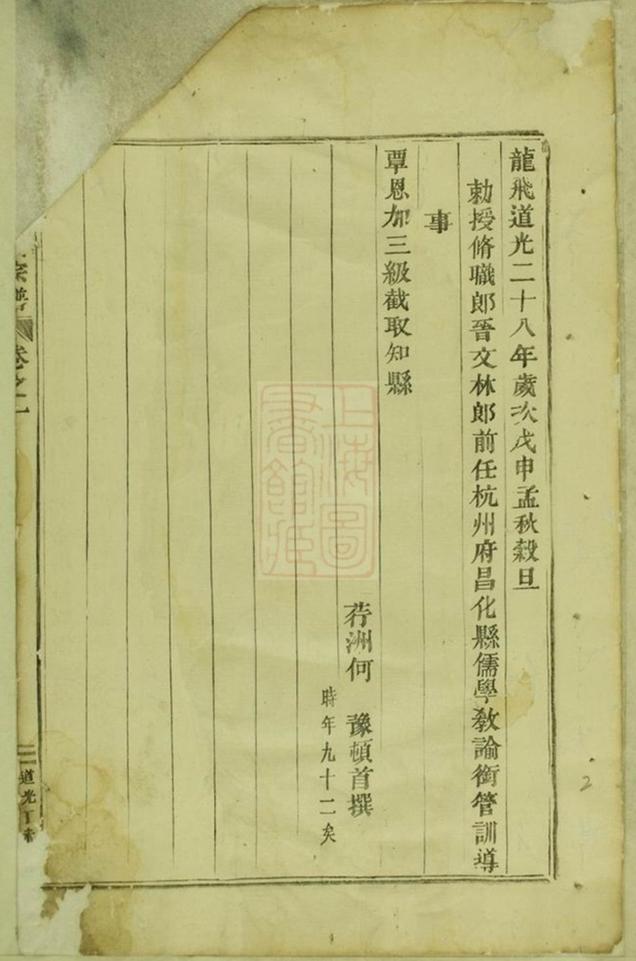 龍飛道光二十八年歲次戊申孟秋穀旦
勅授脩職郎晉文林郎前任杭州府昌化縣儒學教諭銜管訓導
事
覃恩加三級截取知縣
荇洲何 豫頓首撰
時年九十二矣
宗譜
卷之一
道光丁未
上海圖書館藏
2